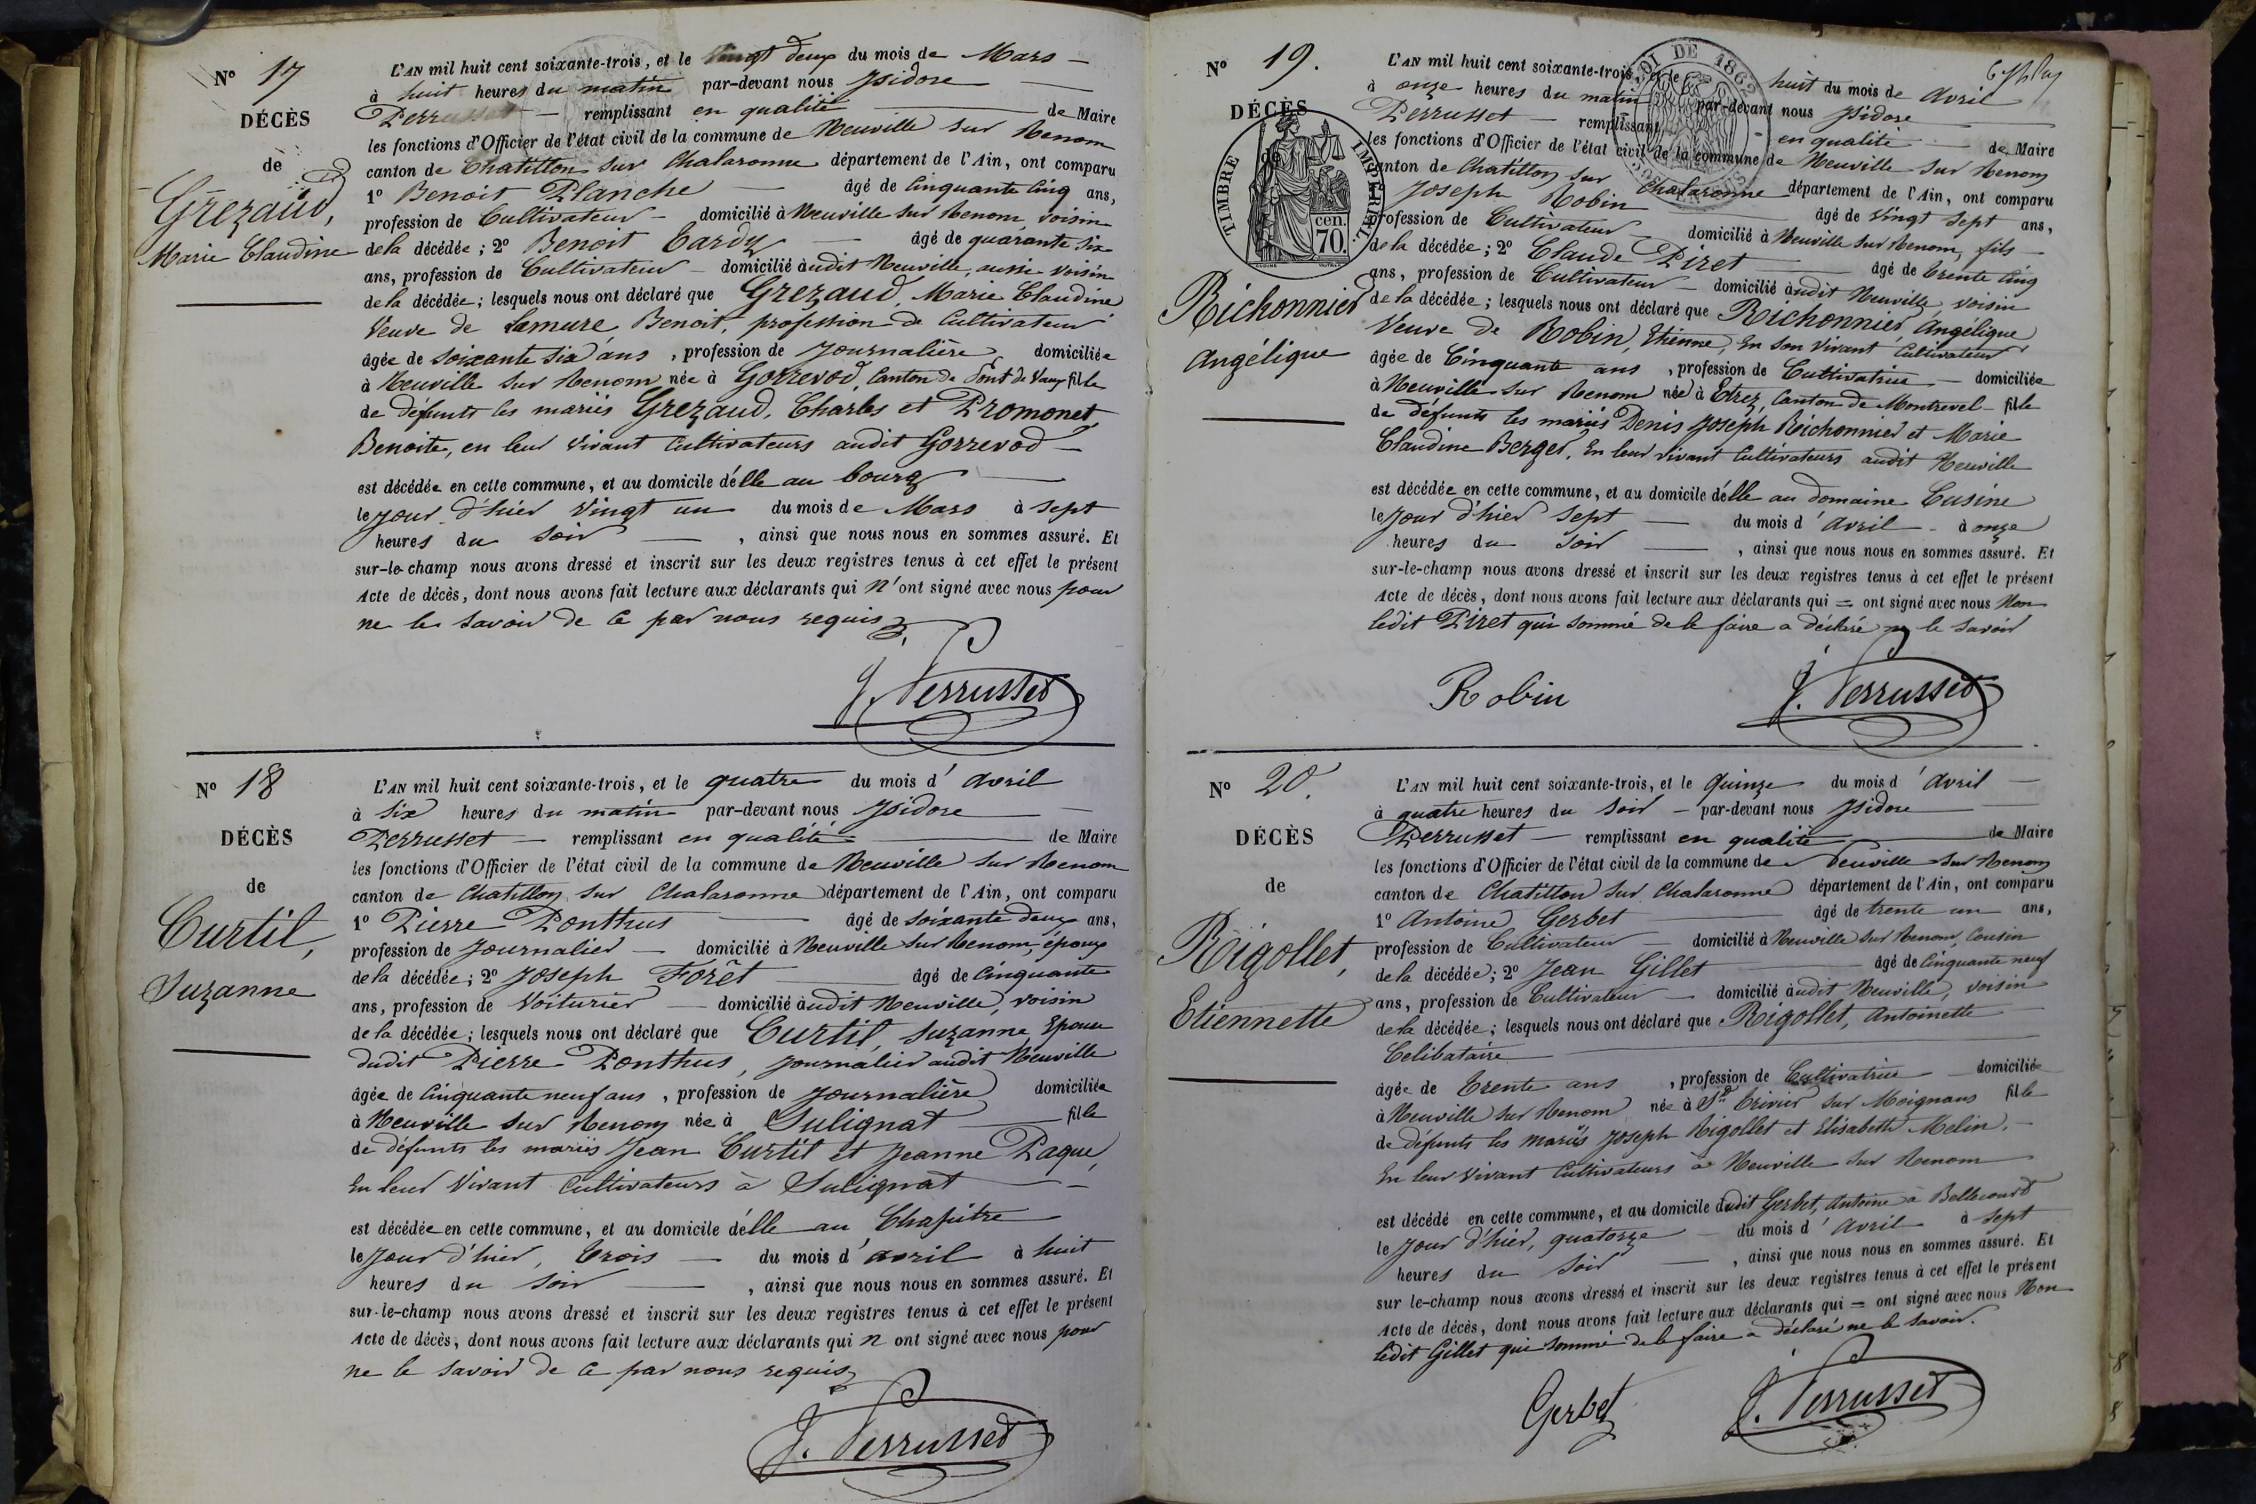 N° 17
DÉCÈS
de
Grezaud,
Marie Claudine
L'AN mil huit cent soixante-trois, et le Vingt deux du mois de Mars
à huit heures du matin par-devant nous Isidore
Perrusset remplissant en qualité de Maire
les fonctions d'Officier de l'état civil de la commune de Neuville sur Renom
canton de Chatillon sur Chalaronne département de l'Ain, ont comparu
1° Benoit Planche âgé de Cinquante Cinq ans,
profession de Cultivateur domicilié à Neuville sur Renom, voisin
de la décédée; 2° Benoit Tardy âgé de quarante six
ans, profession de Cultivateur domicilié audit Neuville, aussi voisin
de la décédée; lesquels nous ont déclaré que Grezaud, Marie Claudine
Veuve de Lamure Benoit, profession de Cultivateur
âgée de soixante six ans, profession de Journalière domiciliée
à Neuville sur Renom née à Gorrevod, Canton de Pont de Vaux fille
de défunts les mariés Grezaud, Charles et Promonet
Benoite, en leur vivant Cultivateurs audit Gorrevod
est décédée en cette commune, et au domicile d'élle au bourg
le jour d'hier Vingt un du mois de Mars à sept
heures du soir, ainsi que nous nous en sommes assuré. Et
sur-le-champ nous avons dressé et inscrit sur les deux registres tenus à cet effet le présent
Acte de décès, dont nous avons fait lecture aux déclarants qui n'ont signé avec nous pour
ne le savoir de ce par nous requis
J. Perrusset
N° 18
DÉCÈS
de
Curtil,
Suzanne
L'AN mil huit cent soixante-trois, et le quatre du mois d'avril
à six heures du matin par-devant nous Isidore
Perrusset remplissant en qualité de Maire
les fonctions d'Officier de l'état civil de la commune de Neuville sur Renom
canton de Chatillon sur Chalaronne département de l'Ain, ont comparu
1° Pierre Ponthus âgé de soixante deux ans,
profession de Journalier domicilié à Neuville sur Renom, époux
de la décédée; 2° Joseph Forêt âgé de Cinquante
ans, profession de Voiturier domicilié audit Neuville, voisin
de la décédée; lesquels nous ont déclaré que Curtil, Suzanne, Epouse
dudit Pierre Ponthus, journalier audit Neuville
âgée de Cinquante neuf ans, profession de Journalière domiciliée
à Neuville sur Renom née à Sulignat fille
de défunts les mariés Jean Curtil et Jeanne Paque,
En leur Vivant Cultivateurs à Sulignat
est décédée en cette commune, et au domicile d'élle au Chapitre
le jour d'hier, trois du mois d'avril à huit
heures du soir, ainsi que nous nous en sommes assuré. Et
sur-le-champ nous avons dressé et inscrit sur les deux registres tenus à cet effet le présent
Acte de décès, dont nous avons fait lecture aux déclarants qui n ont signé avec nous pour
ne le savoir de ce par nous requis
J. Perrusset
N° 19.
DÉCÈS
de
TIMBRE IMPÉRIAL.
cen. 70.
LOI DE 1862
Richonnier
Angélique
L'AN mil huit cent soixante-trois, et le huit du mois de avril
à onze heures du matin par-devant nous Isidore
Perrusset remplissant en qualité de Maire
les fonctions d'Officier de l'état civil de la commune de Neuville sur Renom
canton de Chatillon sur Chalaronne département de l'Ain, ont comparu
Joseph Robin âgé de vingt sept ans,
profession de Cultivateur domicilié à Neuville sur Renom, fils
de la décédée; 2° Claude Piret âgé de trente cinq
ans, profession de Cultivateur domicilié audit Neuville, voisin
de la décédée; lesquels nous ont déclaré que Richonnier Angélique
Veuve de Robin, Etienne, En son Vivant Cultivateur
âgée de Cinquante ans, profession de Cultivatrice domiciliée
à Neuville sur Renom née à Etrez, Canton de Montrevel fille
de défunts les mariés Denis Joseph Richonnier et Marie
Claudine Berger, En leur vivant Cultivateurs audit Neuville
est décédée en cette commune, et au domicile d'élle au domaine Cusine
le jour d'hier sept du mois d'avril à onze
heures du soir, ainsi que nous nous en sommes assuré. Et
sur-le-champ nous avons dressé et inscrit sur les deux registres tenus à cet effet le présent
Acte de décès, dont nous avons fait lecture aux déclarants qui = ont signé avec nous Non
ledit Piret qui sommé de le faire a déclaré ne le savoir
Robin J. Perrusset
N° 20.
DÉCÈS
de
Rigollet,
Etiennette
L'AN mil huit cent soixante-trois, et le Quinze du mois d'avril
à quatre heures du soir par-devant nous Isidore
Perrusset remplissant en qualité de Maire
les fonctions d'Officier de l'état civil de la commune de Neuville sur Renom
canton de Chatillon sur Chalaronne département de l'Ain, ont comparu
1° Antoine Gerbet âgé de trente un ans,
profession de Cultivateur domicilié à Neuville sur Renom, Cousin
de la décédée; 2° Jean Gillet âgé de Cinquante neuf
ans, profession de Cultivateur domicilié audit Neuville, voisin
de la décédée; lesquels nous ont déclaré que Rigollet, Antoinette
Celibataire
âgée de trente ans, profession de Cultivatrice domiciliée
à Neuville sur Renom née à St Trivier sur Moignans fille
de défunts les mariés Joseph Rigollet et Elisabeth Melin,
En leur vivant Cultivateurs à Neuville sur Renom
est décédé en cette commune, et au domicile dudit Gerbet, Antoine à Bellecourt
le jour d'hier, quatorze du mois d'avril à sept
heures du soir, ainsi que nous nous en sommes assuré. Et
sur le-champ nous avons dressé et inscrit sur les deux registres tenus à cet effet le présent
Acte de décès, dont nous avons fait lecture aux déclarants qui = ont signé avec nous Non
ledit Gillet qui sommé de le faire a déclaré ne le savoir.
Gerbet J. Perrusset